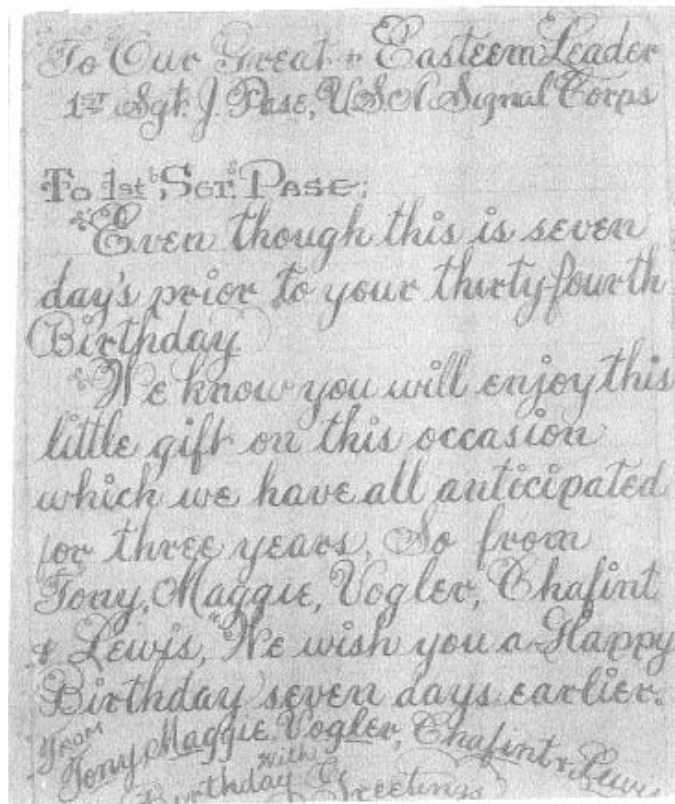 To Our Great + Easteem Leader
1st Sgt. J. Pase, USA Signal Corps
To 1st Sgt. Pase;
Even though this is seven
day's prior to your thirty-fourth
Birthday
We know you will enjoy this
little gift on this occasion
which we have all anticipated
for three years. So from
Tony, Maggie, Vogler, Chafint
& Lewis, We wish you a Happy
Birthday seven days earlier.
From
Tony, Maggie, Vogler, Chafint & Lewis
With
Birthday Greetings